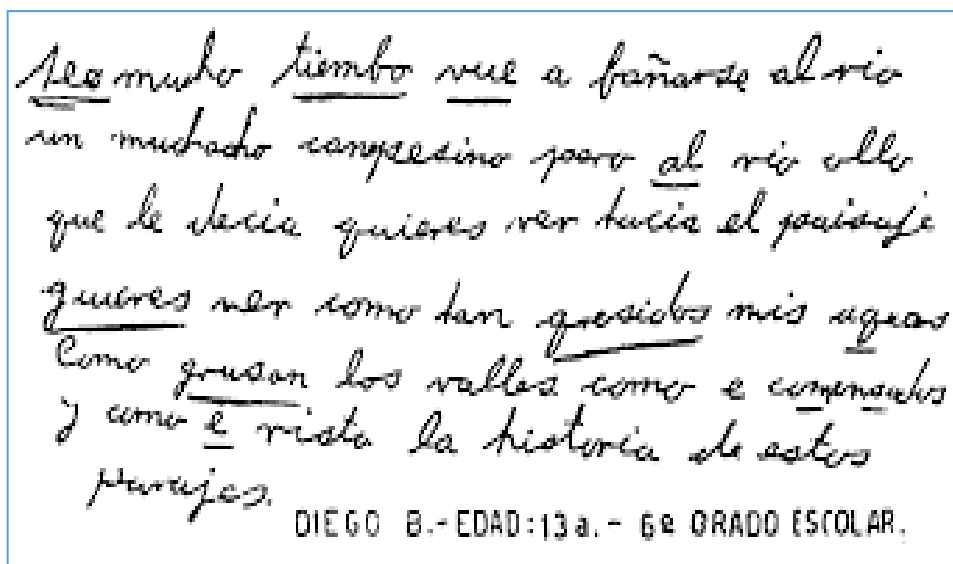 Aeo mucho tiembo vue a bañarse al rio
un muchacho canpesino pero al rio ollo
que le decia quieres ver hacia el paisaje
guieres ver como tan gresidos mis aguas
Como grusan los valles como e comensados
y como e visto la historia de estos
parajes.
DIEGO B.-EDAD:13a.- 6º GRADO ESCOLAR.